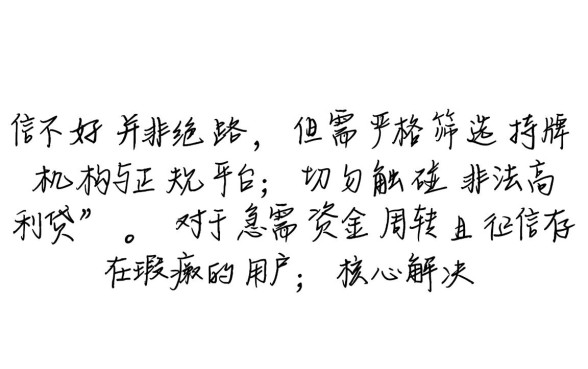 信不好并非绝路，但需严格筛选持牌
机构与正规平台；切勿触碰非法高
利贷”。对于急需资金周转且征信存
在瑕疵的用户；核心解决